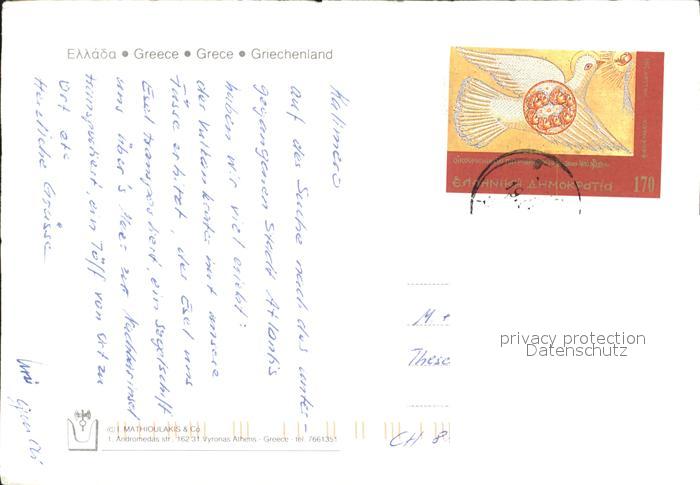 Ελλάδα • Greece • Grece • Griechenland
Kalimero
auf der Suche nach der unter-
gegangenen Stadt Atlantis
haben wir viel erlebt:
der Vulkankrater hat unsere
Füsse erhitzt, der Esel uns
Esel transportiert, ein Segelschiff
uns über's Meer zur Nachbarinsel
transportiert, ein Töff von Ort zu
Ort etc
Herzliche Grüsse
ΕΛΛΗΝΙΚΗ ΔΗΜΟΚΡΑΤΙΑ 170
M +
These
CH 8
privacy protection
Datenschutz
© I. MATHIOULAKIS & Co
1. Andromedas str., 162 31 Vyronas Athens - Greece - tel. 7661351